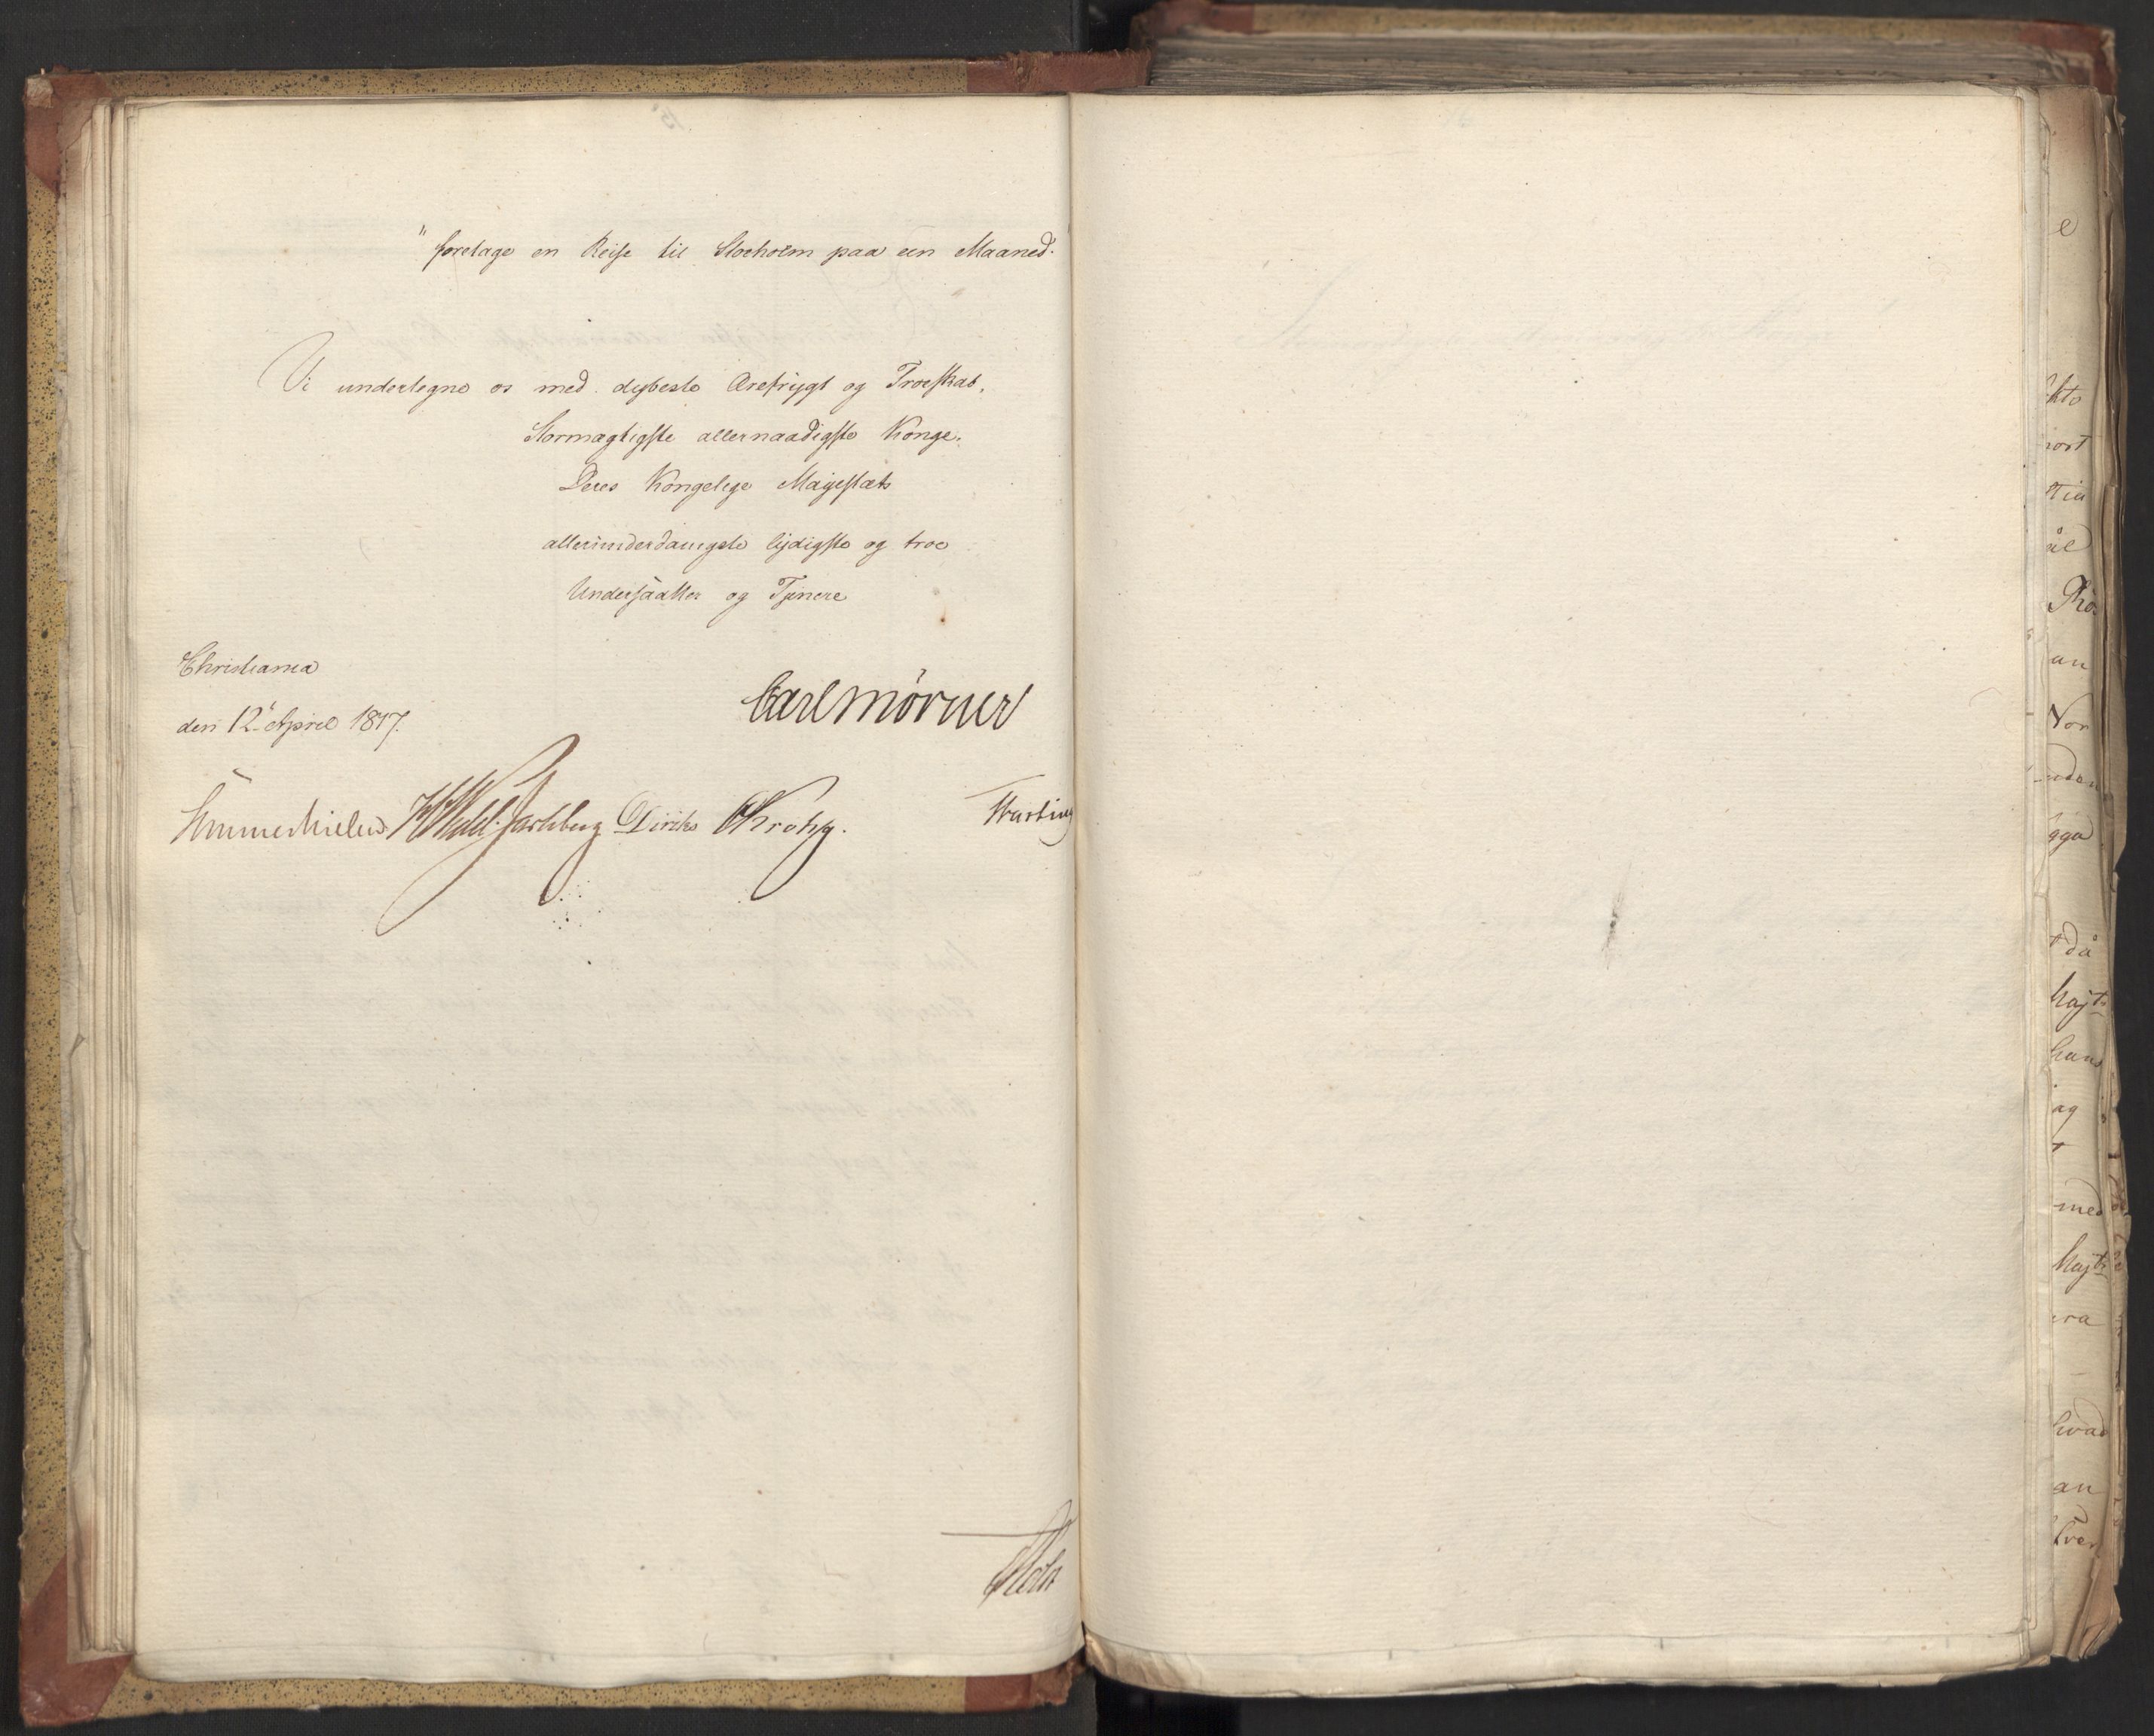 " foretage en Reise til Stocholm paa een Maaned."
Vi undertegne os med dybeste Ærefrygt og Troeskab,
Stormægtigste allernaadigste Konge.
Deres Kongelige Majestæts
allerunderdanigste lydigste og troe
Undersaatter og Tjenere
Christiania
den 12 April 1817.
Carl Mörner
Sommerhielm HWedel-Jarlsberg Diriks Krohg. Hartung
Holst
e
kto
ål
an
Nor
gga
då
Majts
hans
ag
t
med
Majts
ra
hvad
an